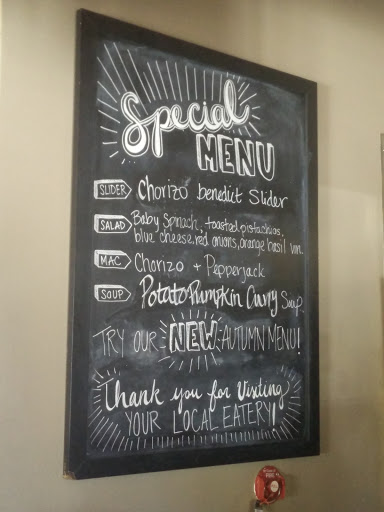 Special
MENU
SLIDER Chorizo benedict Slider
SALAD Baby Spinach, toasted pistachios,
blue cheese, red onions, orange basil vin.
MAC Chorizo + Pepperjack
SOUP Potato Pumpkin Curry Soup
TRY OUR NEW AUTUMN MENU!
Thank you for Visiting
YOUR LOCAL EATERY!